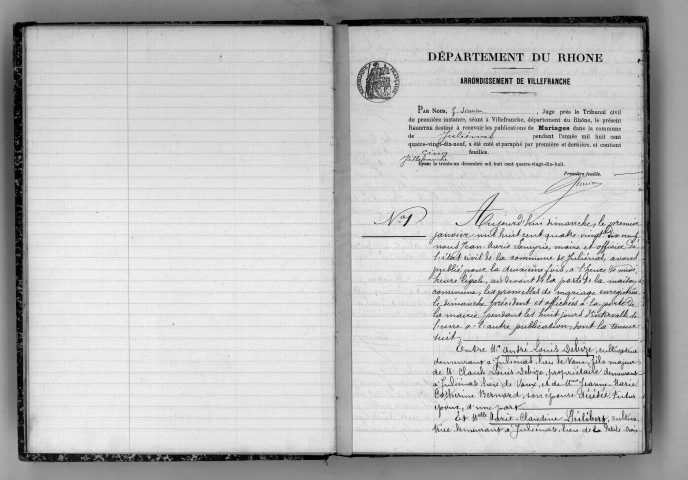 DÉPARTEMENT DU RHONE
ARRONDISSEMENT DE VILLEFRANCHE
RÉPUBLIQUE FRANÇAISE
PAR NOUS, , Juge près le Tribunal civil
de première instance, séant à Villefranche, département du Rhône, le présent
REGISTRE destiné à recevoir les publications de Mariages dans la commune
de Juliénas pendant l'année mil huit cent
quatre-vingt-dix-neuf, a été coté et paraphé par première et dernière, et contient
Cinq feuilles.
Villefranche
Lyon, le trente-un décembre mil huit cent quatre-vingt-dix-huit.
Première feuille.
No 1
Aujourd'hui dimanche, le premier
janvier mil huit cent quatre vingt dix neuf
nous Jean Marie, maire et officier de
l'état civil de la commune de Juliénas, avons
publié pour la deuxième fois, à l'heure de midi,
heure légale, au devant de la porte de la maison
commune, les promesses de mariage enregistrées
le dimanche précédent et affichées à la porte de
la mairie pendant les huit jours d'intervalle de
l'une à l'autre publication, dont la teneur
suit:
Entre Mr André Louis Debize, cultivateur
demeurant à Juliénas, lieu de Vaux, fils majeur
de Mr Claude Louis Debize, propriétaire demeurant
à Juliénas, lieu de Vaux, et de Mme Jeanne Marie
Catherine Bernard, son épouse décédée. Futur
époux, d'une part
Et Melle Marie-Claudine, cultiva-
trice demeurant à Juliénas, lieu de la Petite